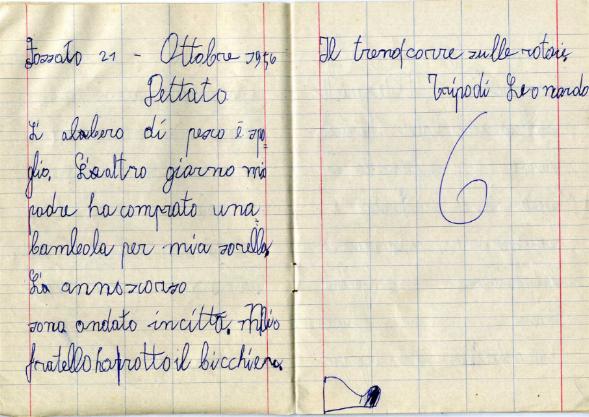 Fossato 21 - Ottobre 1956
Dettato
Li alabero di pesco è spo
glio. L'aaltro giarno mio
padre ha comprato una
bambola per mia sorella
La annoscorso
sona andato in città. Mio
fratello ha protto il bicchiere.
Il trendcorre sulle rotaie
Tripodi Leonardo
6